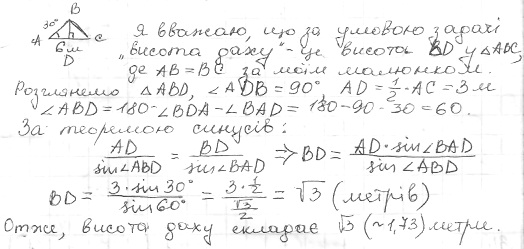 B
30°
A C
6 м
D
Я вважаю, що за умовою задачі
"висота даху" - це висота BD у △ABC,
де AB = BC за моїм малюнком.
Розглянемо △ABD, ∠ADB = 90°, AD = 1/2 · AC = 3 м
∠ABD = 180 - ∠BDA - ∠BAD = 180 - 90 - 30 = 60.
За теоремою синусів:
AD/sin∠ABD = BD/sin∠BAD ⇒ BD = AD · sin∠BAD/sin∠ABD
BD = 3 · sin30°/sin60° = 3 · 1/2/√3/2 = √3 (метрів)
Отже, висота даху складає √3 (~1,73) метри.